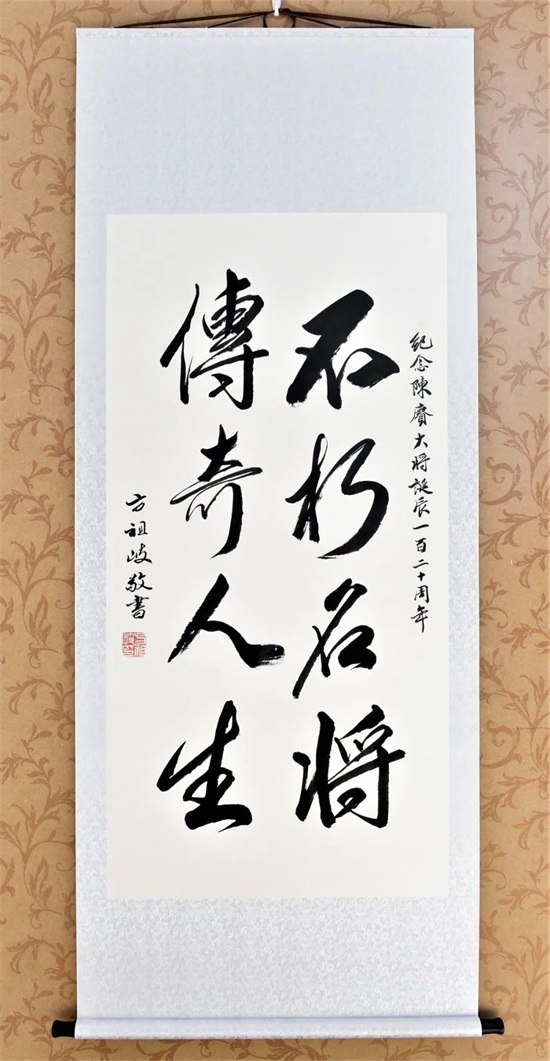 紀念陳賡大将誕辰一百二十周年
不朽名将
傳奇人生
方祖岐敬書